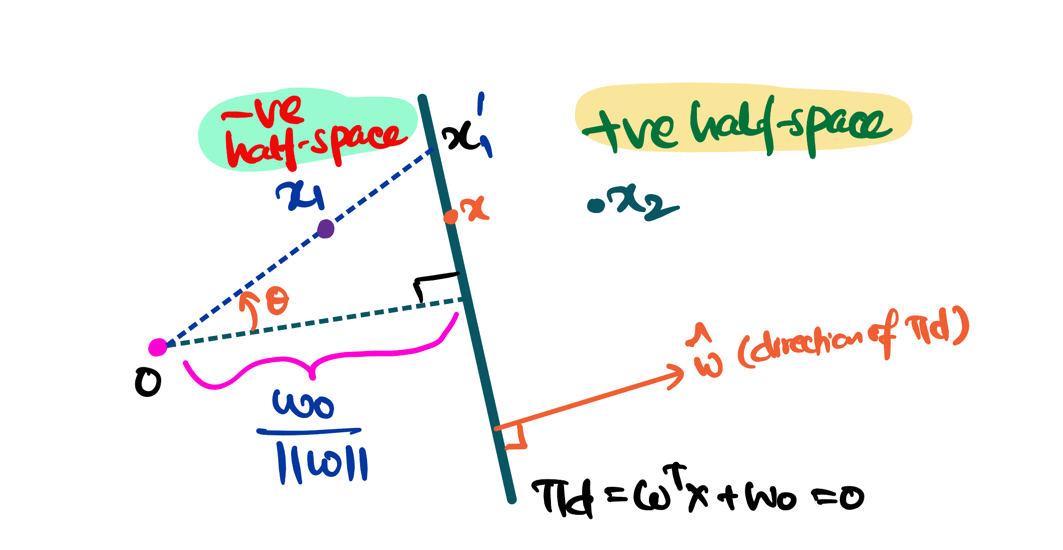 -ve
half-space
+ve half-space
x₁'
x₁
x
x₂
θ
O
ŵ (direction of πd)
w₀
||w||
πd = wᵀx + w₀ = 0